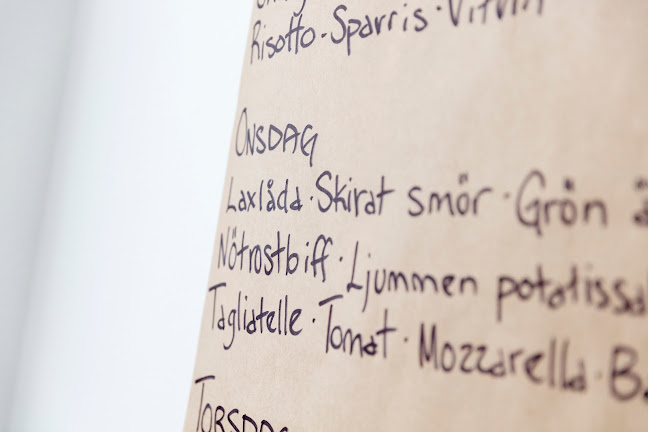 Risotto · Sparris · Vitvin
ONSDAG
Laxlåda · Skirat smör · Grön ä
Nötrostbiff · Ljummen potatissa
Tagliatelle · Tomat · Mozzarella · B
TORSDAG